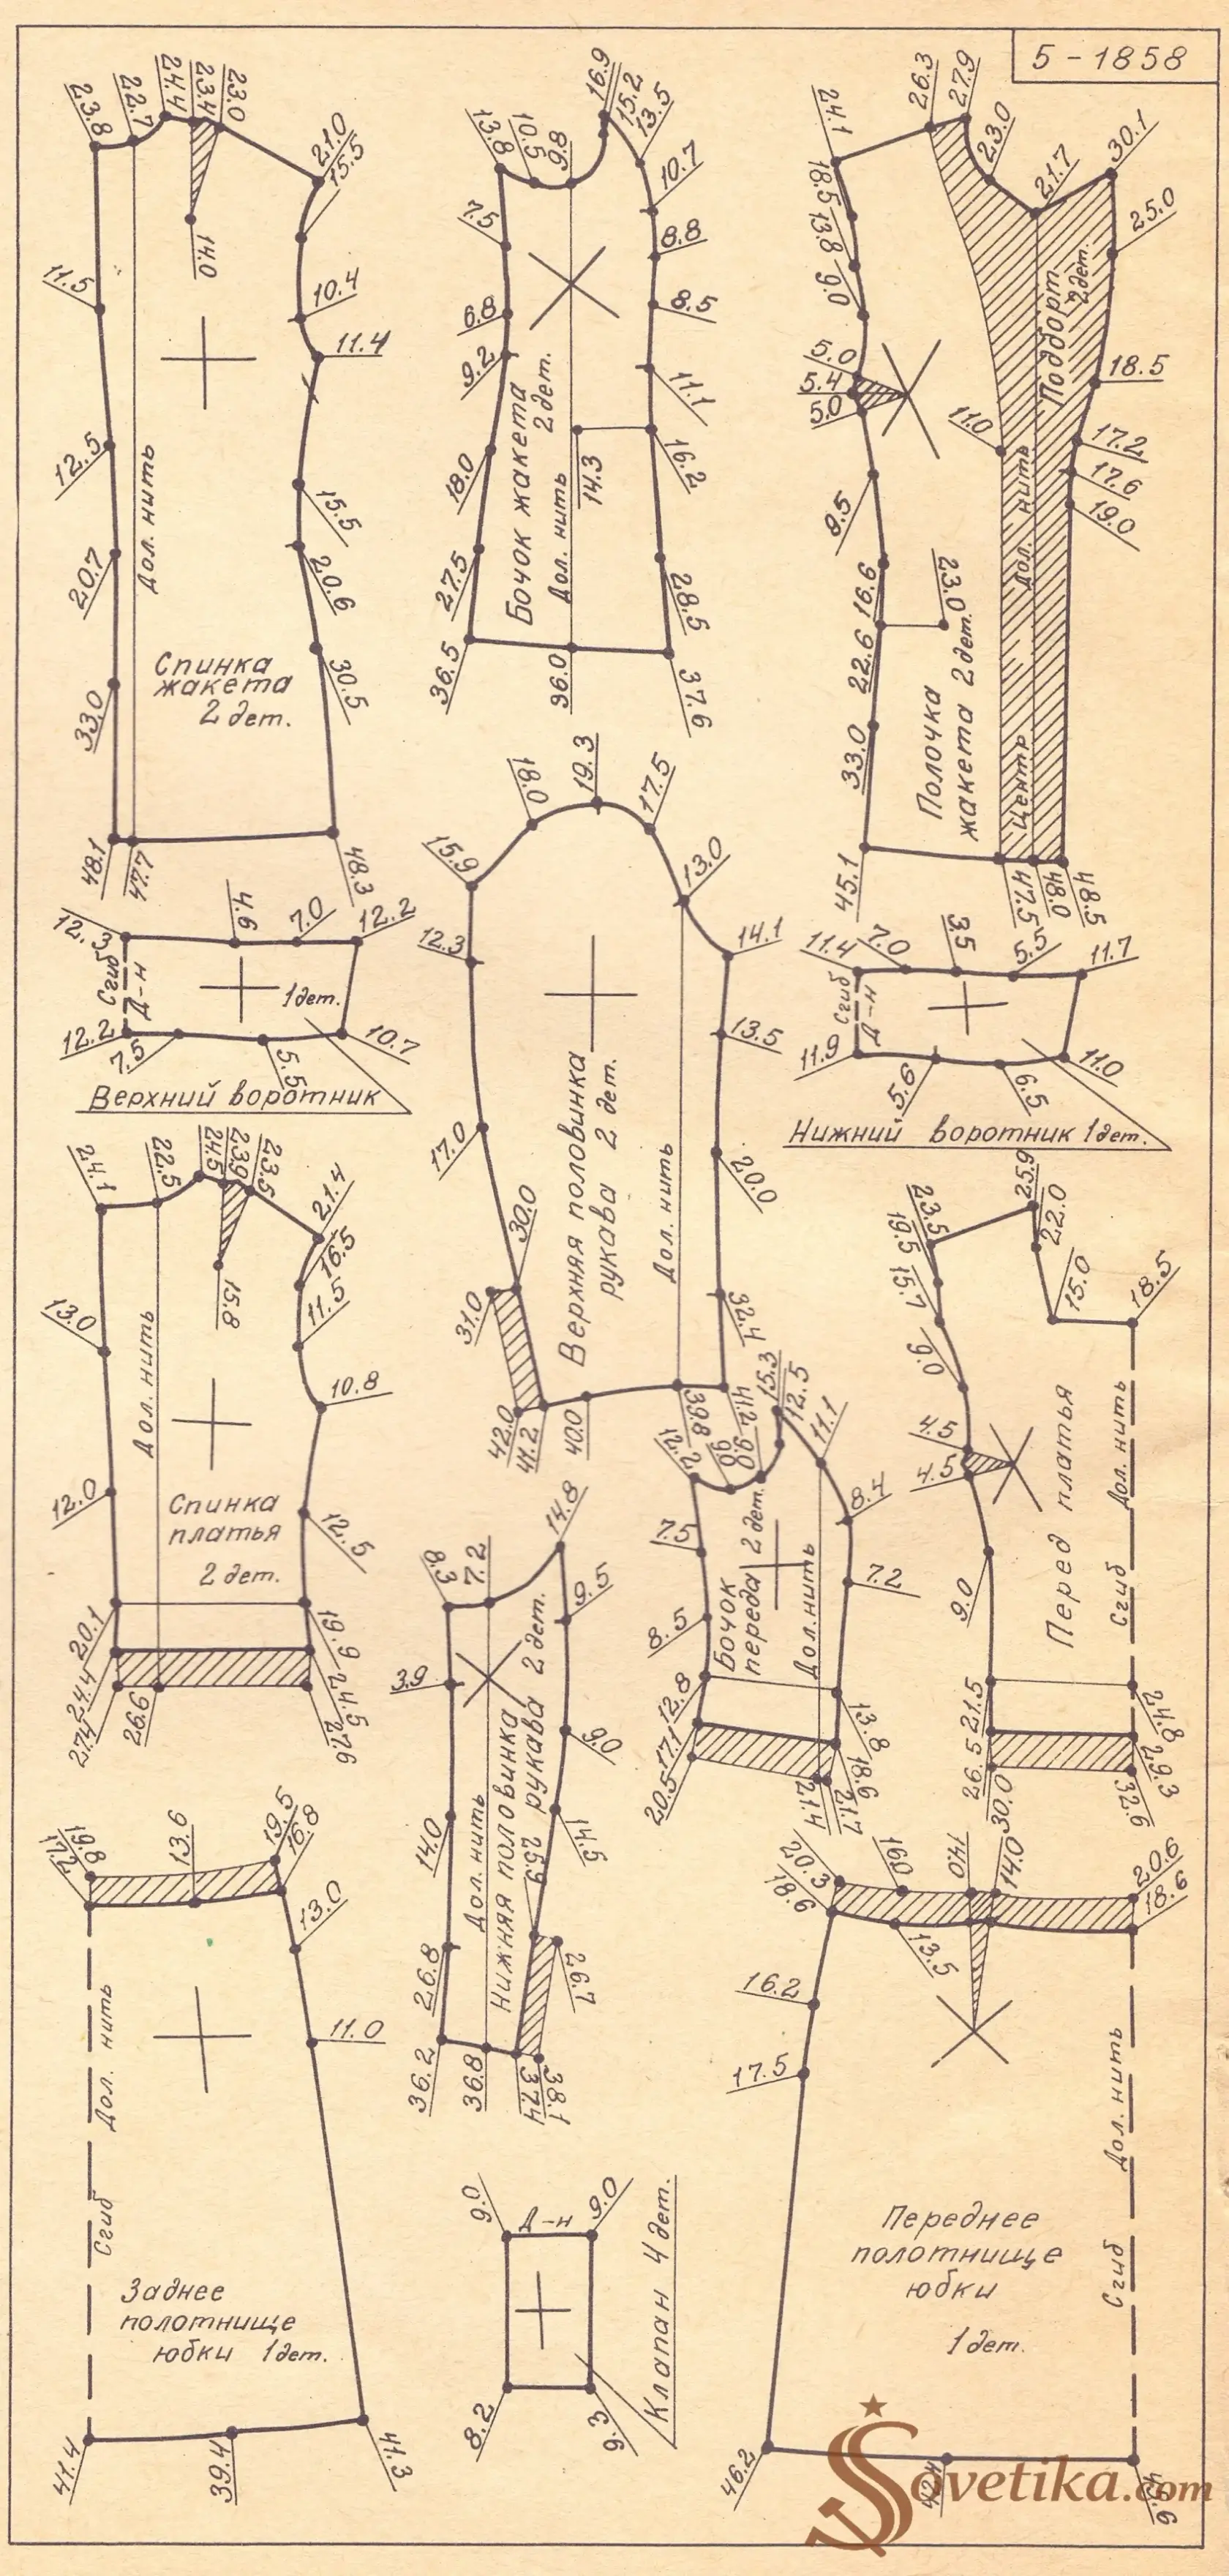 5-1858
23.8
22.7
24.4
23.4
23.0
21.0
15.5
14.0
11.5
10.4
11.4
12.5
15.5
20.7
20.6
33.0
30.5
48.1
47.7
48.3
Дол. нить
Спинка
жакета
2 дет.
13.8
10.5
9.8
16.9
15.2
13.5
10.7
7.5
8.8
6.8
8.5
9.2
11.1
18.0
14.3
16.2
27.5
28.5
36.5
36.0
37.6
Бочок жакета
2 дет.
Дол. нить
24.1
26.3
27.9
23.0
21.7
30.1
25.0
18.5
13.8
9.0
5.0
5.4
5.0
11.0
18.5
17.2
17.6
19.0
9.5
16.6
23.0
22.6
33.0
45.1
47.5
48.0
48.5
Подборт
2 дет.
Дол. нить
Центр
Полочка
жакета 2 дет.
12.3
4.6
7.0
12.2
Сгиб
Д-н
1 дет.
12.2
7.5
5.5
10.7
Верхний воротник
15.9
18.0
19.3
17.5
13.0
14.1
12.3
13.5
17.0
20.0
30.0
31.0
32.4
42.0
41.2
40.0
39.8
41.2
Верхняя половинка
рукава 2 дет.
Дол. нить
11.4
7.0
3.5
5.5
11.7
Сгиб
Д-н
11.9
5.6
6.5
11.0
Нижний воротник 1 дет.
24.1
22.5
24.5
23.9
23.5
21.4
16.5
11.5
15.8
13.0
10.8
12.0
12.5
20.1
19.9
24.4
24.5
27.4
26.6
27.6
Дол. нить
Спинка
платья
2 дет.
8.3
7.2
14.8
9.5
3.9
9.0
14.0
14.5
25.9
26.8
26.7
36.2
36.8
37.4
38.1
Дол. нить
Нижняя половинка
рукава 2 дет.
12.2
9.6
9.0
15.3
12.5
11.1
8.4
7.5
7.2
8.5
12.8
13.8
17.1
18.6
20.5
21.4
21.7
Бочок
переда 2 дет.
Дол. нить
23.5
19.5
25.9
22.0
15.0
18.5
15.7
9.0
4.5
4.5
9.0
21.5
24.8
26.5
29.3
30.0
32.6
Перед платья
Сгиб Дол. нить
19.8
17.1
13.6
19.5
16.8
13.0
11.0
41.4
39.4
41.3
Сгиб Дол. нить
Заднее
полотнище
юбки 1 дет.
9.0
Д-н
9.0
8.2
9.3
Клапан 4 дет.
20.3
18.6
16.0
14.0
14.0
20.6
18.6
13.5
16.2
17.5
46.2
Сгиб Дол. нить
Переднее
полотнище
юбки
1 дет.
Sovetika.com